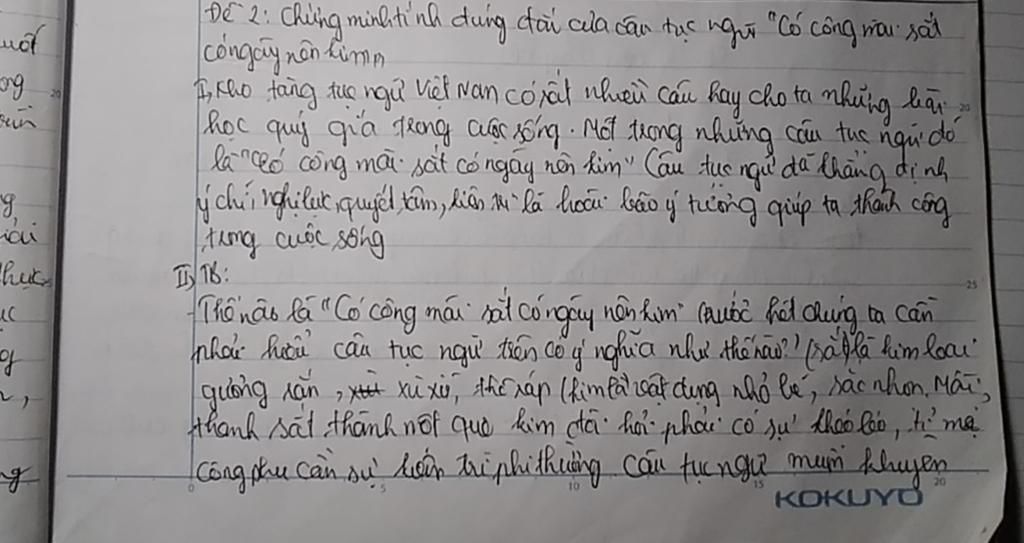 Đề 2: Chứng minh tính đúng đắn của câu tục ngữ "Có công mài sắt
có ngày nên kim"
I, Kho tàng tục ngữ Việt Nam có rất nhiều câu hay cho ta những bài
học quý giá trong cuộc sống. Một trong những câu tục ngữ đó
là "Có công mài sắt có ngày nên kim" Câu tục ngữ đã khẳng định
ý chí nghị lực, quyết tâm, kiên trì là hoài bão ý tưởng giúp ta thành công
trong cuộc sống
II, TB:
Thế nào là "Có công mài sắt có ngày nên kim" trước hết chúng ta cần
phải hiểu câu tục ngữ trên có ý nghĩa như thế nào? (sắt) là kim loại
cứng rắn, xù xì, thô ráp (kim là vật dụng nhỏ bé, sắc nhọn. Mài
thanh sắt thành một que kim đòi hỏi phải có sự khéo léo, tỉ mỉ
công phu cần sự kiên trì phi thường câu tục ngữ muốn khuyên
KOKUYO
0 5 10 15 20
20
25
uốt
ong
g,
thực
uc
g
ng